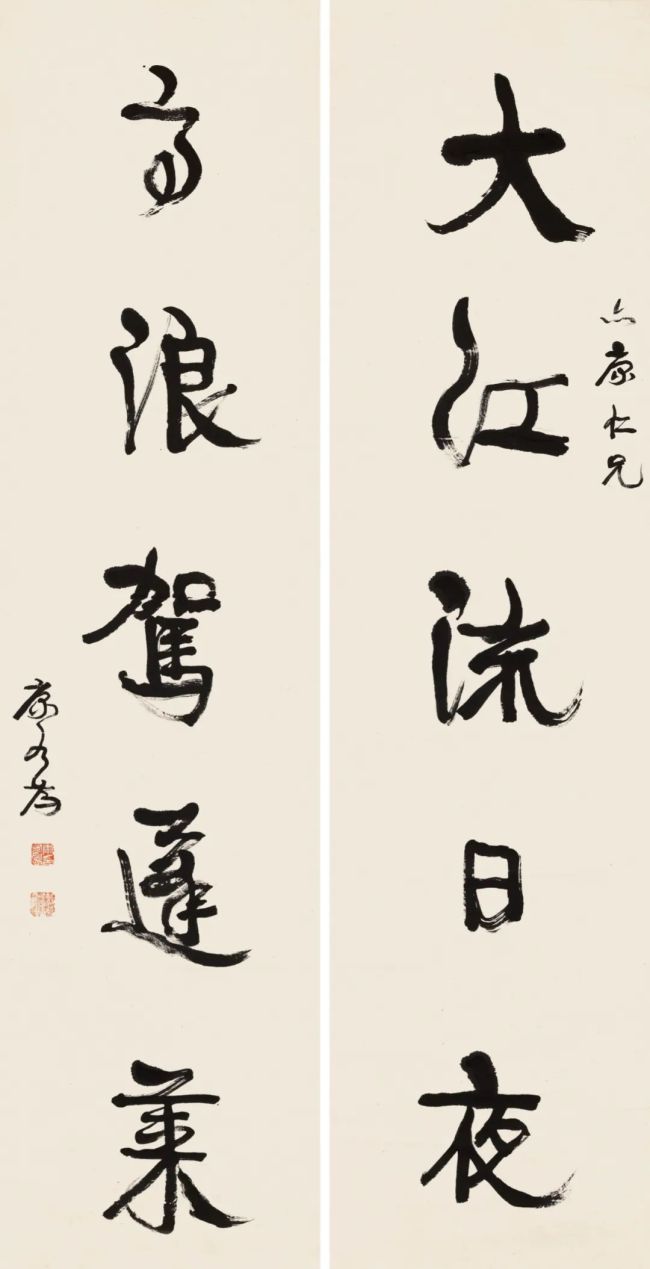 康仁兄
大江流日夜
高浪駕蓬萊
康有為